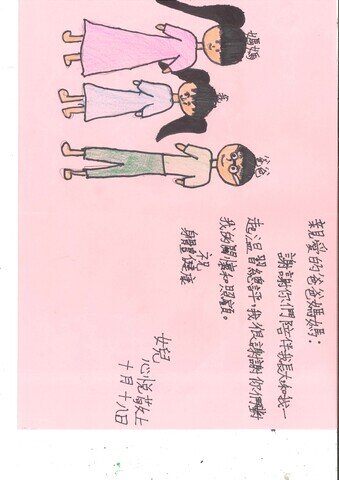 媽媽
我
爸爸
親愛的爸爸媽媽：
謝謝你們陪伴我長大和我一
起溫習總評，我很謝謝你們對
我的關懷和照顧。
祝
身體健康
女兒
心悅敬上
十月十八日